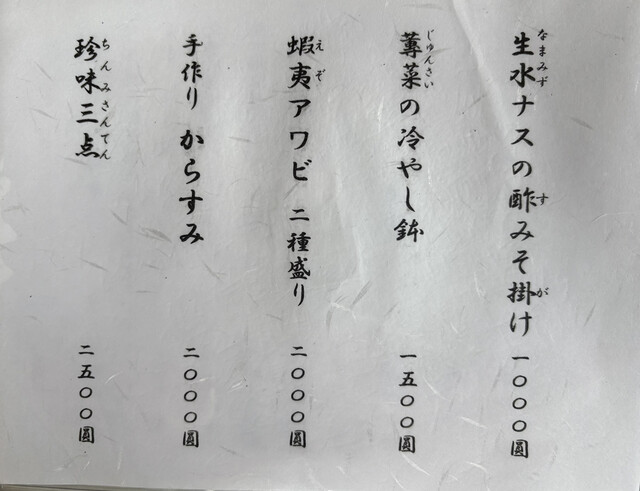 生水ナスの酢みそ掛け 一〇〇〇圓
なまみず す が
蓴菜の冷やし鉢 一五〇〇圓
じゅんさい
蝦夷アワビ 二種盛り 二〇〇〇圓
えぞ
手作り からすみ 二〇〇〇圓
珍味三点 二五〇〇圓
ちんみさんてん